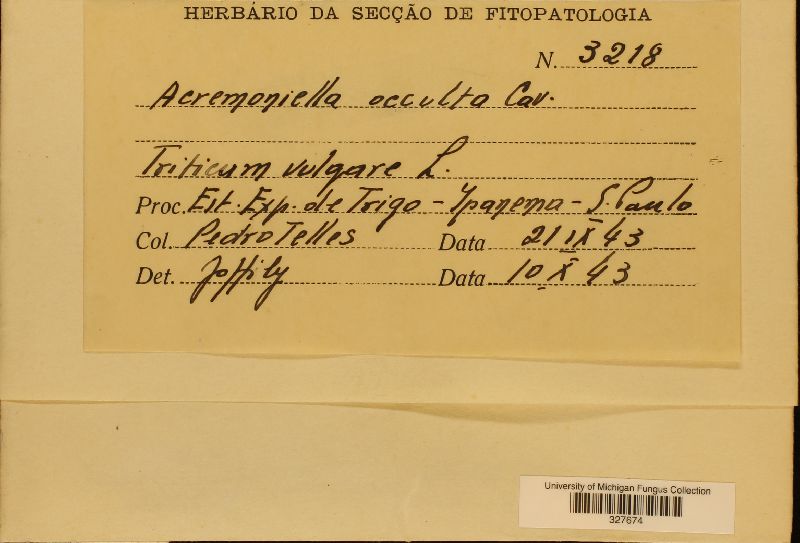 HERBÁRIO DA SECÇÃO DE FITOPATOLOGIA
N. 3218
Acremoniella occulta Cav.
Triticum vulgare L.
Proc. Est. Exp. de Trigo - Ypanema - S. Paulo
Col. Pedro Telles Data 21 IX 43
Det. Joffily Data 10 X 43
University of Michigan Fungus Collection
327674